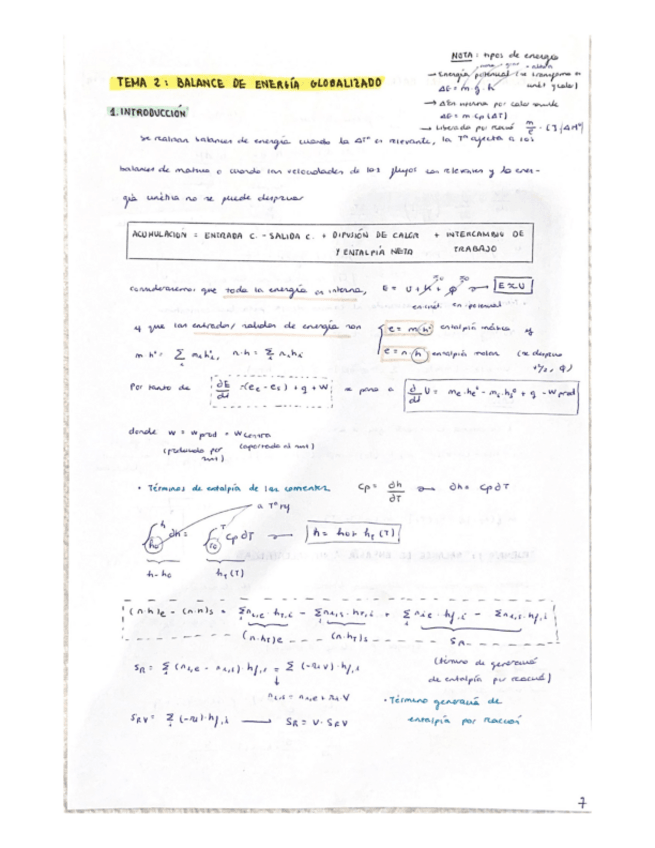 NOTA: tipos de energía
→ Energía potencial (se transforma en
ΔE = m·g·h
→ Δen interna por calor
ΔE = m·cp(ΔT)
→ Liberada por
TEMA 2: BALANCE DE ENERGÍA GLOBALIZADO
1. INTRODUCCIÓN
Se realizan balances de energía cuando la ΔTª es relevante, la Tª afecta a los
balances de materia o cuando las velocidades de los flujos son relevantes y la ener-
gía cinética no se puede despreciar
ACUMULACIÓN = ENTRADA C. - SALIDA C. + DIFUSIÓN DE CALOR + INTERCAMBIO DE
Y ENTALPÍA NETA TRABAJO
consideraremos que toda la energía es interna, e = u + k + φ → E ≈ U
en. cinét. en. potencial
y que las entradas/salidas de energía son
e = m h° entalpía másica y
e = n h entalpía molar (se desprecia
Por tanto de ∂E/dt = (e_e - e_s) + q + w se pasa a ∂/dt U = m_e·h_e° - m_s·h_s° + q - w prod
donde w = w prod + w
(producido por (aportado al
• Términos de entalpía de las corrientes cp = ∂h/∂T → ∂h = cp∂T
a Tª ref
∫ ∂h = ∫ cp∂T → h = h₀ + h_T(T)
h - h₀ h_T(T)
(n·h)_e - (n·h)_s = Σn_{i,e}·h_{T,i} - Σn_{i,s}·h_{T,i} + Σn_{i,e}·h_{f,i} - Σn_{i,s}·h_{f,i}
(n·h_T)_e (n·h_T)_s S_R
S_R = Σ(n_{i,e} - n_{i,s})·h_{f,i} = Σ(-r_i V)·h_{f,i} (término de generación
de entalpía por reacción)
n_{i,s} = n_{i,e} + r_i V
• Término generación de
S_{RV} = Σ(-r_i)·h_{f,i} → S_R = V·S_{RV} entalpía por reacción
7